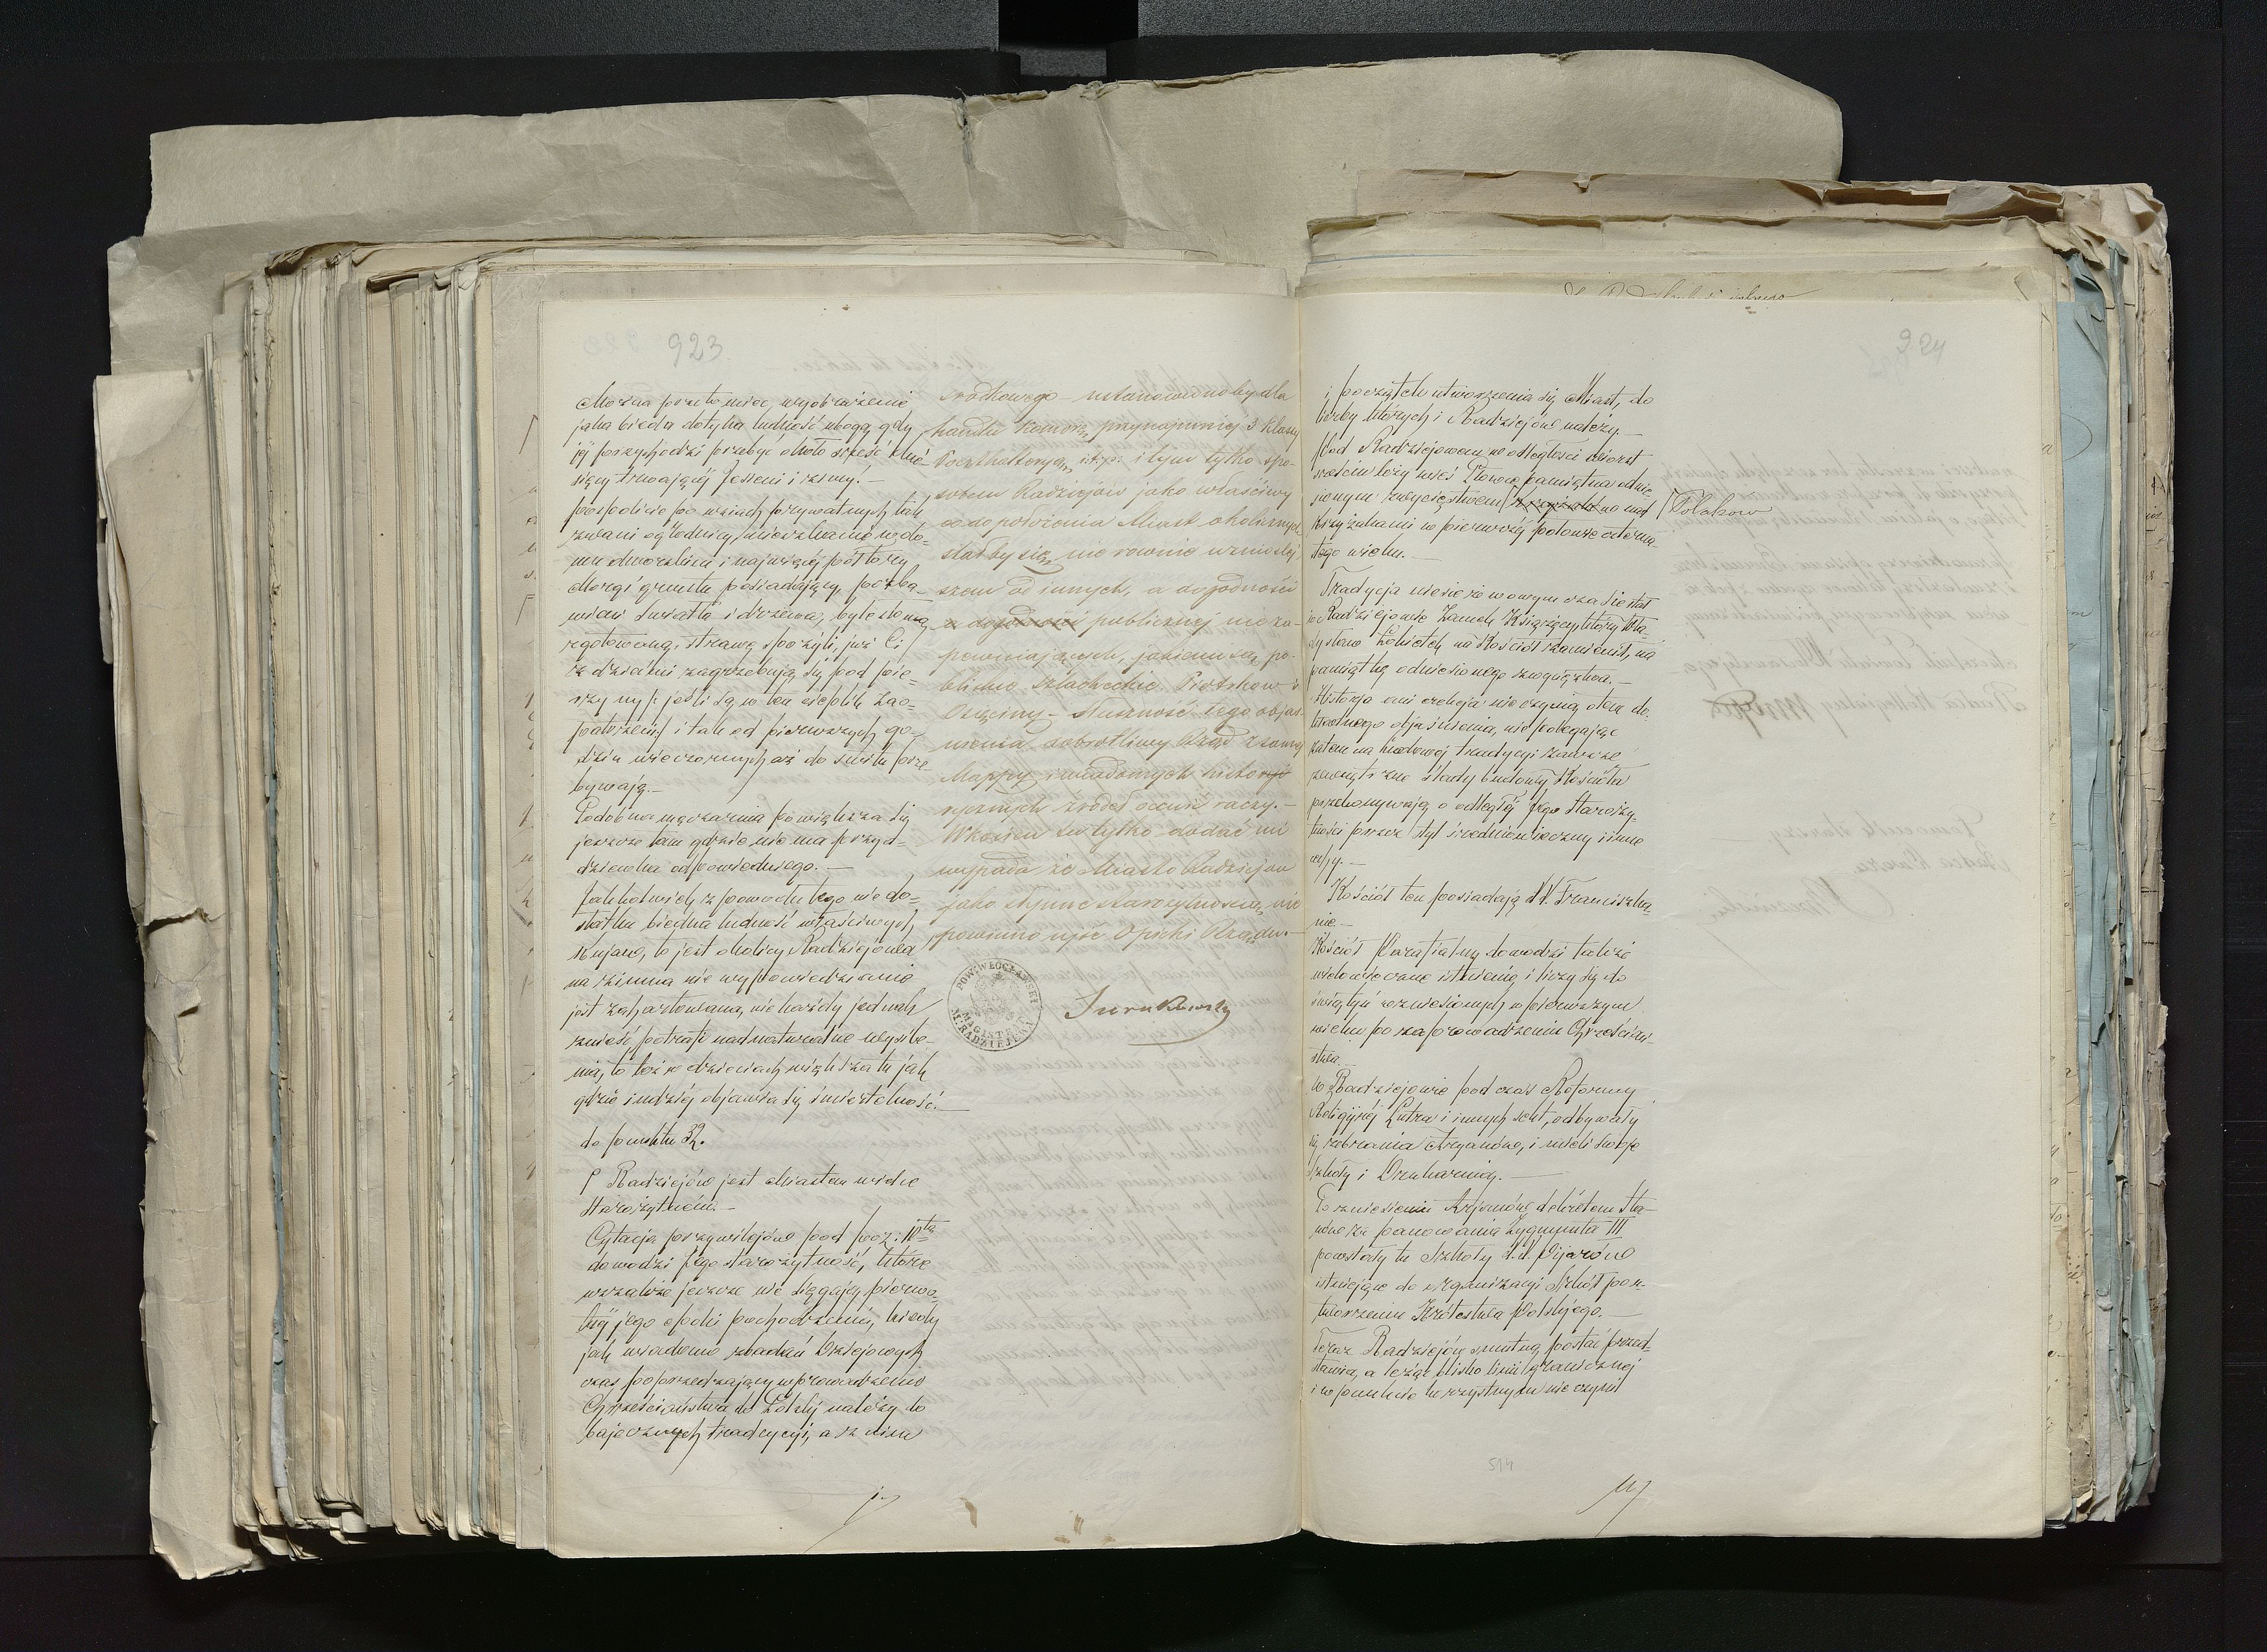 923
Można przeto mieć wyobrażenie
jaka bieda dotyka ludność ubogą gdy
jéj przychodzi przebyć około sześć mie=
sięcy trwającéj Jesieni i zimy. —
pospolicie po wsiach prywatnych tak
zwani ogrodnicy, mieszkanie w do=
mu dworskim i najwięcéj półtory
Morgi gruntu posiadający, pozba=
wieni światła i drzewa, byle słomą
zgotowaną strawę spożyli, już Ci
z dziećmi zagrzebują się pod pie=
rzyny /: jeśli są w ten ciepłik zao=
patrzeni :/ i tak od pierwszych go=
dzin wieczornych aż do świtu prze=
bywają. —
Podobna męczarnia powiększa się
jeszcze tam gdzie nie ma przyo=
dziewku odpowiedniego. —
Jakkolwiek z powodu tego niedo=
statku biedna ludność właściwych
Kujaw, to jest okolicy Radziejowa
na zimna nie wypowiedzianie
jest zahartowana, nie każdy jednak
znieść potrafi nadnaturalne wysile=
nia, to też w dzieciach większa tu jak
gdzie indziéj objawia się śmiertelność. —
do punktu 32.
Radziejów jest Miastem wielce
starożytném. —
Cytacja przywilejów pod poz: IVta
dowodzi jego starożytność, które
wszakże jeszcze nie sięgają pierwo=
tnéj jego epoki pochodzenia, kiedy
jak wiadomo z badań Dziejowych
czas poprzedzający wprowadzenie
Chrześciaństwa do Polski należy do
bajecznych tradycyi, a z nim
środkowego ustanowionoby dla
handlu Komorę przynajmniéj 3 klassy
Poczthalteryą, i.t.p: i tym tylko spo=
sobem Radziejów jako właściwy
co do położenia Miast okolicznych
stałby się nie rownie wznioslej=
szem od innych, a dogodności
a dogodności publicznej nie za=
pewniających, jakiemi są po=
bliskie szlacheckie Piotrków i
Osięciny. — Słuszność tego objaś=
nienia dobrotliwy Rząd z samej
Mappy i wiadomych histo
rycznych źródeł ocenić raczy. —
Wkońcu tu tylko dodać mi
wypada że Miasto Radziejow
jako słynne starożytnością, nie
powinno ujść Opieki Rządu. —
POW: WŁOCŁAWSKI
MAGIST:
M: RADZIEJEWA
924
i początek utworzenia się Miast, do
liczby których i Radziejów należy. —
Pod Radziejowem w odległości wiorst
sześciu leży wieś Płowce pamiętna odnie=
sionym zwycięstwem nad
Polakow
Krzyżakami w pierwszéj połowie czterna=
stego wieku. —
Tradycja niesie że w owym czasie stał
w Radziejowie Zamek Książęcy, który Wła=
dysław Łokietek na Kościół zamienił, na
pamiątkę odniesionego zwycięztwa. —
Historja ani erekcja nie czynią o tem do=
kładnego objaśnienia, nie polegając
zatem na ludowéj tradycyi zawsze
zewnętrzne ślady budowy Kościoła
przekonywają o odległéj jego Staroży=
tności przez styl średniowieczny i inne
Kościół ten posiadają XX. Franciszka=
nie. —
Kościół Parafialny dowodzi także
wielowiekowe istnienie i liczy się do
świątyń wzniesionych w pierwszym
wieku po zaprowadzeniu Chrześciań=
stwa. —
w Radziejowie podczas Reformy
Religijnéj Lutra i innych sekt, odbywały
się zebrania Arjanów, i mieli swoje
szkoły i Drukarnię. —
Po zniesieniu Arjanów dekretem Sta=
nów za panowania Zygmunta III
powstały tu Szkoły XX. Pijarów
istniejące do organizacyi Szkół po u=
tworzeniu Królestwa Polskiego. —
Teraz Radziejów smutną postać przed=
stawia, a leżąc blisko linii granicznej
i w punkcie korzystnym nie czynił
514